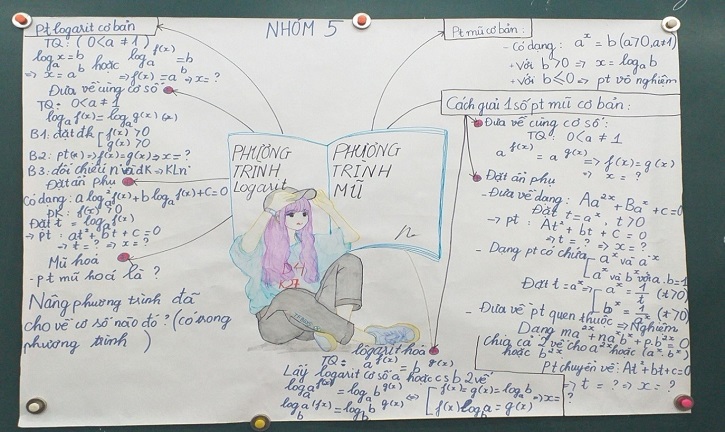 NHÓM 5
Pt logarit cơ bản
TQ: (0<a≠1)
logₐx=b hoặc logₐf(x)=b
⇒ x=aᵇ ⇒ f(x)=aᵇ ⇒ x=?
Đưa về cùng cơ số
TQ: 0<a≠1
logₐf(x)=logₐg(x) (*)
B1: đặt đk [f(x)>0
g(x)>0
B2: pt(*)⇒f(x)=g(x)⇒x=?
B3: đối chiếu n và đk⇒KLn⁰
Đặt ẩn phụ
Có dạng: a log²ₐf(x)+b logₐf(x)+C=0
ĐK: f(x)>0
Đặt t=logₐf(x)
→ pt: at²+bt+C=0
⇒t=? ⇒x=?
Mũ hoá
-pt mũ hoá là?
Nâng phương trình đã
cho về cơ số nào đó? (có trong
phương trình)
PHƯƠNG
TRÌNH
Logarit
PHƯƠNG
TRÌNH
MŨ
Pt mũ cơ bản:
- Có dạng: aˣ=b (a>0, a≠1)
+Với b>0 ⇒ x=logₐb
+Với b≤0 ⇒ pt vô nghiệm
Cách giải 1 số pt mũ cơ bản:
Đưa về cùng cơ số:
TQ: 0<a≠1
a^f(x)=a^g(x) ⇒f(x)=g(x)
⇒ x=?
Đặt ẩn phụ
-Đưa về dạng: Aa²ˣ+Baˣ+c=0
Đặt t=aˣ, t>0
→ pt: At²+bt+C=0
⇒t=? ⇒x=?
- Dạng pt có chứa [aˣ và a⁻ˣ
aˣ và bˣ với a.b=1
Đặt t=aˣ⇒[a⁻ˣ=1/t (t>0)
bˣ=1/t (t>0)
- Đưa về pt quen thuộc ⇒Nghiệm
Dạng ma²ˣ+naˣbˣ+p.b²ˣ=0
chia cả 2 vế cho a²ˣ hoặc (aˣ.bˣ)
hoặc b²ˣ
Pt chuyển về: At²+bt+c=0
⇒ t=? ⇒x=?
logarit hoá
TQ: a^f(x)=b^g(x)
Lấy logarit cơ số a hoặc cs b 2 vế
logₐa^f(x)=logₐb^g(x)
log_b a^f(x)=log_b b^g(x) ⇔ [f(x)=g(x)=logₐb ⇒x=?
f(x)log_b a=g(x)